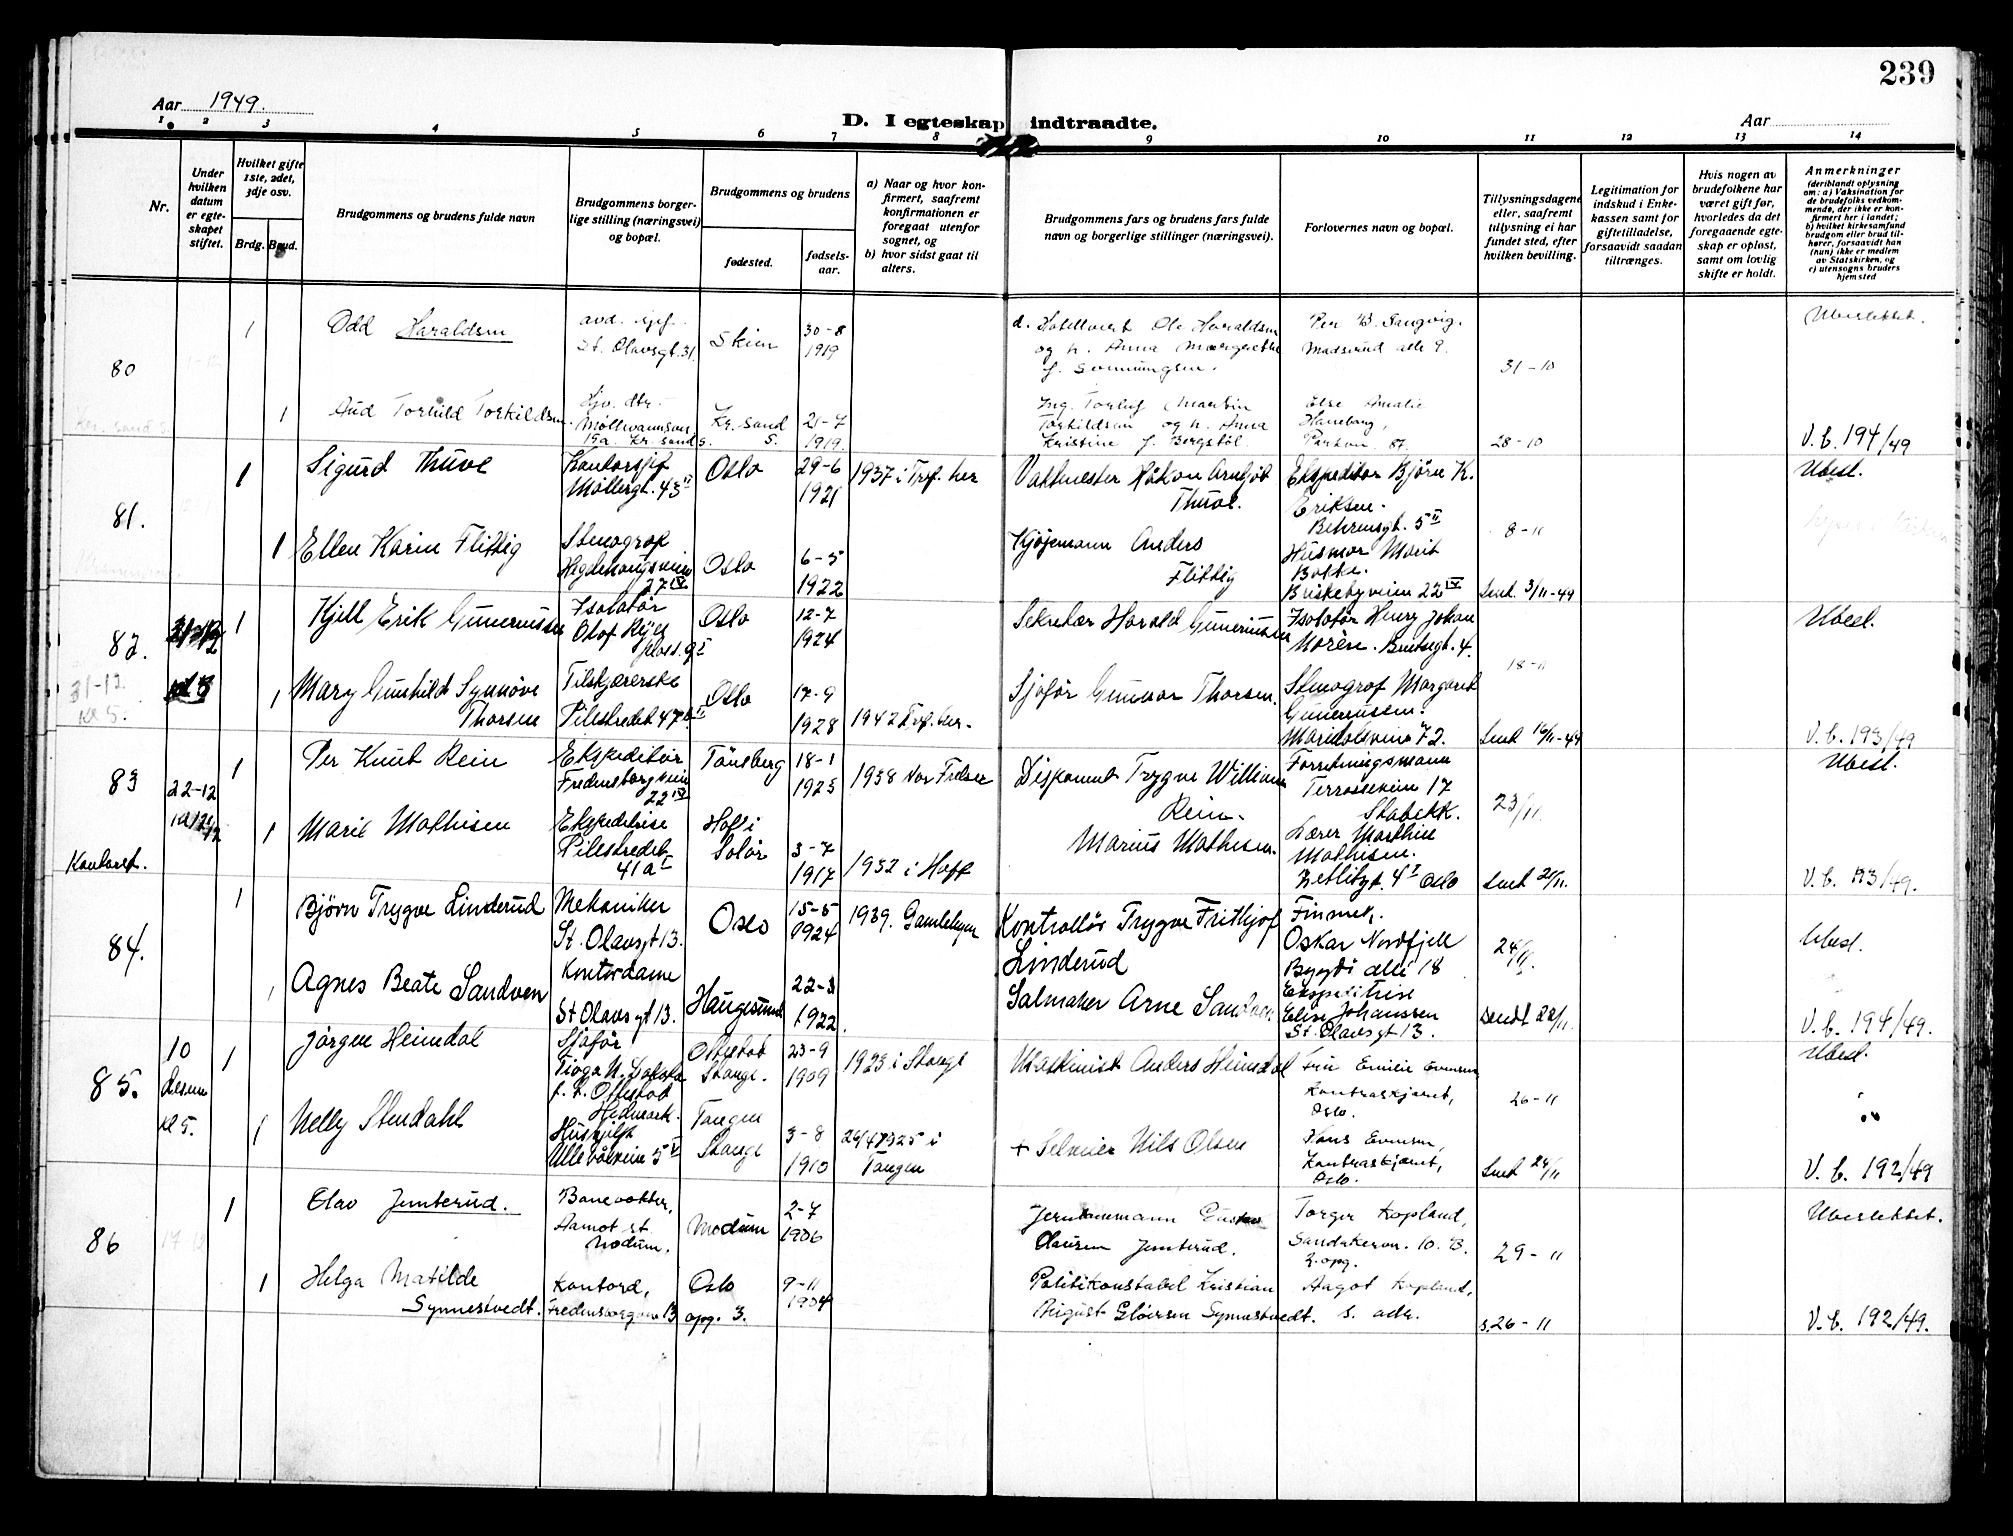 239
Aar 1949.
D. I egteskap indtraadte.
Aar
1 2 3 4 5 6 7 8 9 10 11 12 13 14
Nr.
Under hvilken datum er egte-skapet stiftet.
Hvilket gifte 1ste, 2det, 3dje osv.
Brdg. Brud.
Brudgommens og brudens fulde navn
Brudgommens borger-lige stilling (næringsvei) og bopæl.
Brudgommens og brudens
fødested.
fødsels-aar.
a) Naar og hvor kon-firmert, saafremt konfirmationen er foregaat utenfor sognet, og
b) hvor sidst gaat til alters.
Brudgommens fars og brudens fars fulde navn og borgerlige stillinger (næringsvei).
Forlovernes navn og bopæl.
Tillysningsdagene eller, saafremt tillysning ei har fundet sted, efter hvilken bevilling.
Legitimation for indskud i Enke-kassen samt for giftetilladelse, forsaavidt saadan tiltrænges.
Hvis nogen av brudefolkene har været gift før, hvorledes da det foregaaende egte-skap er opløst, samt om lovlig skifte er holdt.
Anmerkninger
(deriblandt oplysning om: a) Vaksination for de brudefolks vedkom-mende, der ikke er kon-firmert her i landet; b) hvilket kirkesamfund brudgom eller brud til-hører, forsaavidt han (hun) ikke er medlem av Statskirken, og c) utensogns bruders hjemsted
80
1 Odd Haraldsen
St. Olavsgt. 31
Skien
30-8
1919
Ole Haraldsen
og h. Anna Margrethe
Per B. Sangvig.
Madserud alle 9.
31-10
Uberlettet.
1 Aud Torhild Torkildsen
Kr. sand S.
21-7
1919.
Ing. Torluf Martin
Torkildsen og h. Anna
Kristine f. Bergstöl
Else Amalie
28-10
V.b. 194/49
81.
1 Sigurd Thuve
Kontorsjef
Møllergt. 43 II
Oslo
29-6
1921
1937 i Tref. her
Vaktmester Håkon Arnljot
Thuve.
Ekspeditør Björn K.
Eriksen.
Behrensgt. 5 II
8-11
Ubesl.
1 Ellen Karin Flittig
Stenograf
Hegdehaugsveien
27 IV
Oslo
6-5
1922
Kjøpmann Anders
Flittig
Husmor Marit
Bakke.
Briskebyveien 22 IV
Sent. 3/11-49
82.
31-12
kl 5.
1 Kjell Erik Gunerius­sen
Isolatör
Olaf Ryes
plass. 9 I
Oslo
12-7
1924
Sekretær Harald Guneriussen
Isolatör Henry Johan
Morén. Bentsegt. 4.
18-11
Ubesl.
1 Mary Gunhild Synnöve
Thorsen
Tilskjærerske
Pilestredet 47b II
Oslo
17-9
1928
1942 Tref. her.
Sjåför Gunnar Thorsen.
Stenograf Margaret
Guneriussen.
Maridalsveien 72.
Sent 16/11-49
V.b. 193/49
83
22-12
Kontoret.
1 Per Knut Rein
Ekspeditör
Fredensborgveien
22 IV
Tönsberg
18-1
1923
1938 Vor Frelser
Disponent Trygve William
Rein.
Forretningsmann
Terrasseveien 17
Stabekk.
23/11.
Ubesl.
1 Marit Mathisen
Ekspeditrise
Pilestredet
41a I
Hof i
Solör
3-7
1917
1932 i Hoff
Marius Mathisen.
Lærer Marthin
Mathisen.
Ketlitzgt. 4 I Oslo
Sent 21/11.
V.b. 193/49.
84.
1 Björn Trygve Linderud
Mekaniker
St. Olavsgt 13.
Oslo
15-5
1924
1939. Gamlebyen
Kontrollör Trygve Frithjof
Linderud
Oskar Nordfjell
Bygdö allé 18
24/11.
Ubesl.
1 Agnes Beate Sandven
Kontordame
St Olavsgt 13.
Haugesund
22-3
1922.
Salmaker Arne Sandven.
Ekspeditrise
Elise Johanssen
St. Olavsgt 13.
Sendt 22/11.
V.b. 194/49.
85.
10
Desem
kl 5.
1 Jörgen Heimdal
Sjåför
Ottestad
Hedmark.
Ottestad
Stange.
23-9
1909
1923 i Stange
Maskinist Anders Heimdal
Fru Emilie Evensen
Kontraskjæret,
Oslo.
26-11
Ubesl.
"
1 Nelly Stendahl
Hushjelp
5 V
Tangen
Stange
3-8
1910
26/4 1925 i
Tangen
+ Selveier Nils Olsen
Hans Evensen,
Kontraskjæret,
Oslo.
Sent 24/11
V.b. 192/49
86
1 Olav Jemterud.
Banevokter,
Aamot st.
Modum.
Modum
2-7
1906
Jernbanemann Gustav
Clausen Jemterud.
Torger Kopland,
Sandakervn. 10. B.
2. opg.
29-11
Uberlettet.
1 Helga Matilde
Synnestvedt.
Kontord,
Fredensborgvn 13
opg. 3.
Oslo
9-11
1904
Politikonstabel Kristian
August Gløersen Synnestvedt.
Aagot Kopland,
s. adr.
s. 26-11
V.b. 192/49.